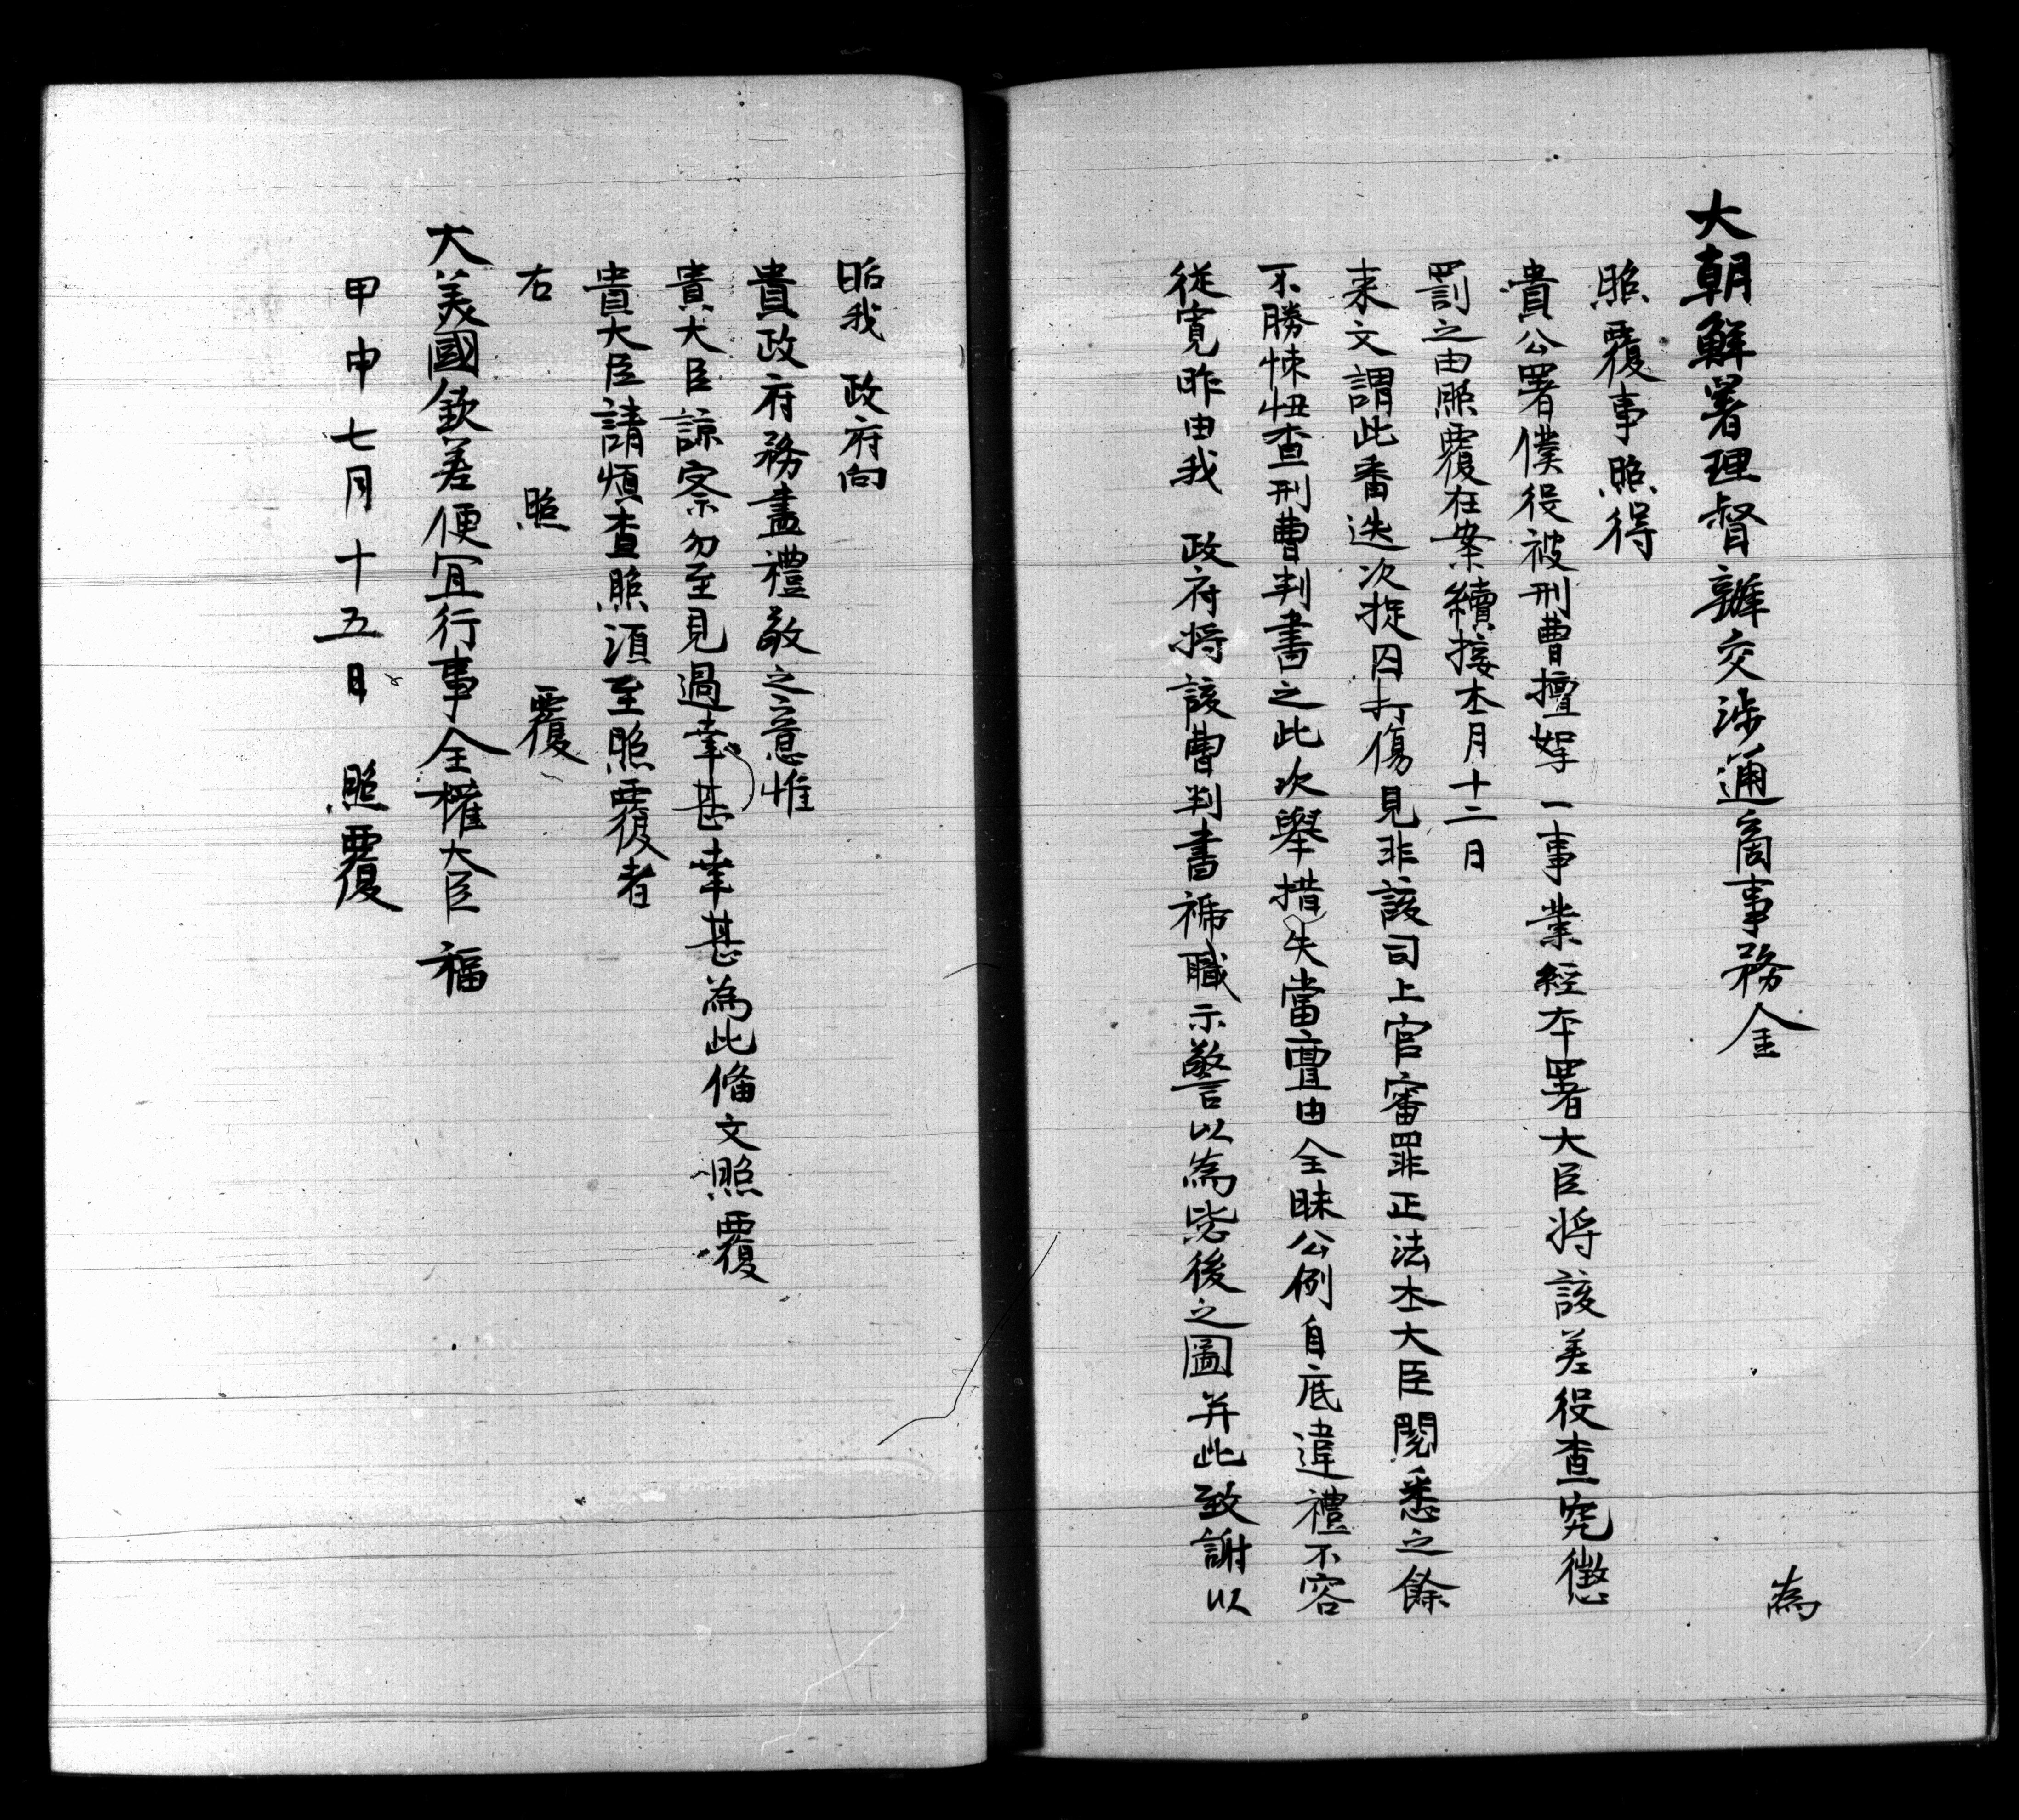 大朝鮮署理督辦交涉通商事務金 為
照覆事照得
貴公署僕役被刑曹擅拏一事業經本署大臣將該差役查究懲
罰之由照覆在案續接本月十二日
来文謂此番迭次捉囚打傷見非該司上官審罪正法本大臣閱悉之餘
不勝悚忸查刑曹判書之此次舉措失當亶由全昧公例自底違禮不容
從寬昨由我 政府将該曹判書褫職示警以為毖後之圖并此致謝以
昭我 政府向
貴政府務盡禮敬之意惟
貴大臣諒察勿至見過幸甚幸甚為此備文照覆
貴大臣請煩查照須至照覆者
右 照 覆
大美國欽差便宜行事全權大臣 福
甲申七月十五日 照覆